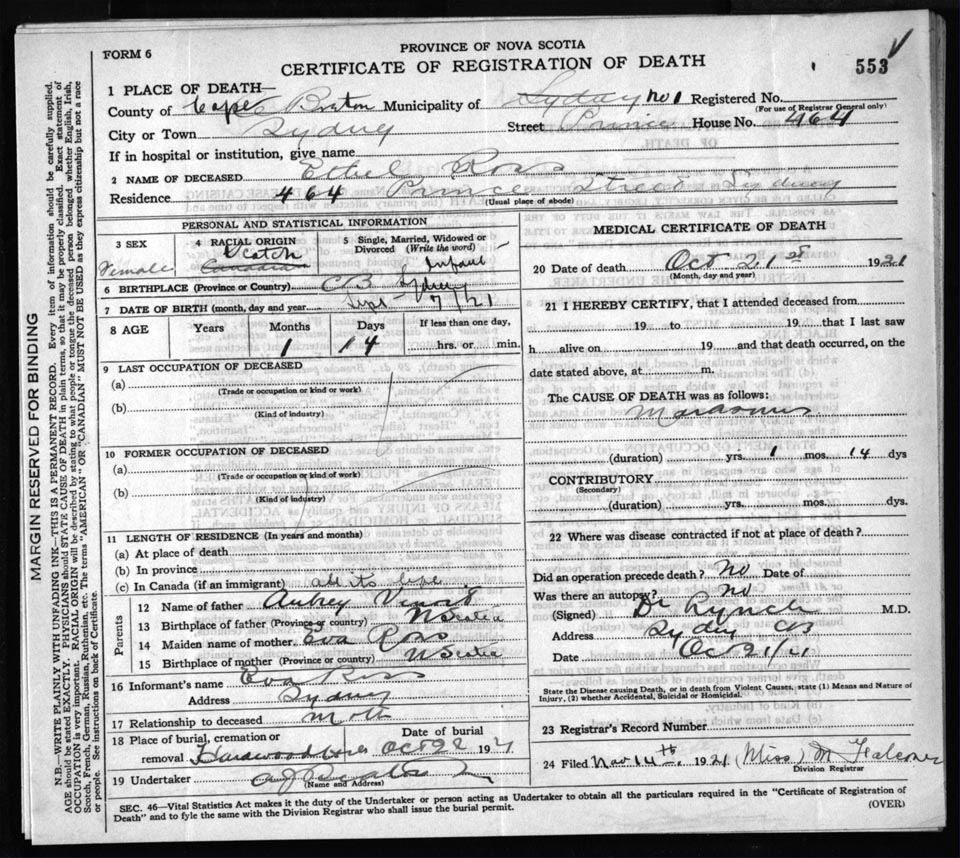 PROVINCE OF NOVA SCOTIA
FORM 6
CERTIFICATE OF REGISTRATION OF DEATH
553
1 PLACE OF DEATH—
County of Cape Breton Municipality of Sydney No 1 Registered No.
(For use of Registrar General only)
City or Town Sydney Street Prince House No. 464
If in hospital or institution, give name
2 NAME OF DECEASED Ethel Ross
Residence 464 Prince Street Sydney
(Usual place of abode)
PERSONAL AND STATISTICAL INFORMATION
3 SEX
Female
4 RACIAL ORIGIN
Scotch
Canadian
5 Single, Married, Widowed or Divorced (Write the word)
Infant
6 BIRTHPLACE (Province or Country) CB Sydney
7 DATE OF BIRTH (month, day and year) Sept 7/21
8 AGE Years Months Days If less than one day,
1 14 hrs. or min.
9 LAST OCCUPATION OF DECEASED
(a)
(Trade or occupation or kind or work)
(b)
(Kind of industry)
10 FORMER OCCUPATION OF DECEASED
(a)
(Trade or occupation or kind of work)
(b)
(Kind of industry)
11 LENGTH OF RESIDENCE (In years and months)
(a) At place of death
(b) In province
(c) In Canada (if an immigrant) all its life
Parents
12 Name of father Aubrey
13 Birthplace of father (Province or country) N Scotia
14 Maiden name of mother Eva Ross
15 Birthplace of mother (Province or country) N Scotia
16 Informant's name Eva Ross
Address Sydney
17 Relationship to deceased Moth
18 Place of burial, cremation or removal Hardwood Date of burial Oct 22 192
19 Undertaker
(Name and Address)
MEDICAL CERTIFICATE OF DEATH
20 Date of death Oct 21st 1921
(Month, day and year)
21 I HEREBY CERTIFY, that I attended deceased from
19 to 19 that I last saw
h alive on 19 and that death occurred, on the
date stated above, at m.
The CAUSE OF DEATH was as follows:
Marasmus
(duration) yrs. 1 mos. 14 dys
CONTRIBUTORY
(Secondary)
(duration) yrs. mos. dys.
22 Where was disease contracted if not at place of death?
Did an operation precede death? No Date of
Was there an autopsy? No
(Signed) Dr Lynch M.D.
Address Sydney CB
Date Oct 21/21
State the Disease causing Death, or in death from Violent Causes, state (1) Means and Nature of Injury, (2) whether Accidental, Suicidal or Homicidal.
23 Registrar's Record Number
24 Filed Nov 14th 1921 (Miss) M Falconer
Division Registrar
SEC. 46—Vital Statistics Act makes it the duty of the Undertaker or person acting as Undertaker to obtain all the particulars required in the "Certificate of Registration of
Death" and to fyle the same with the Division Registrar who shall issue the burial permit.
(OVER)
MARGIN RESERVED FOR BINDING
N.B.—WRITE PLAINLY WITH UNFADING INK—THIS IS A PERMANENT RECORD. Every item of information should be carefully supplied.
AGE should be stated EXACTLY. PHYSICIANS should STATE CAUSE OF DEATH in plain terms, so that it may be properly classified. Exact statement of
OCCUPATION is very important. RACIAL ORIGIN will be described by stating to what people or tongue the deceased person belonged whether English, Irish,
Scotch, French, German, Russian, Ruthenian, etc. The terms "AMERICAN" OR "CANADIAN" MUST NOT BE USED as they express citizenship but not a race
or people. See instructions on back of Certificate.